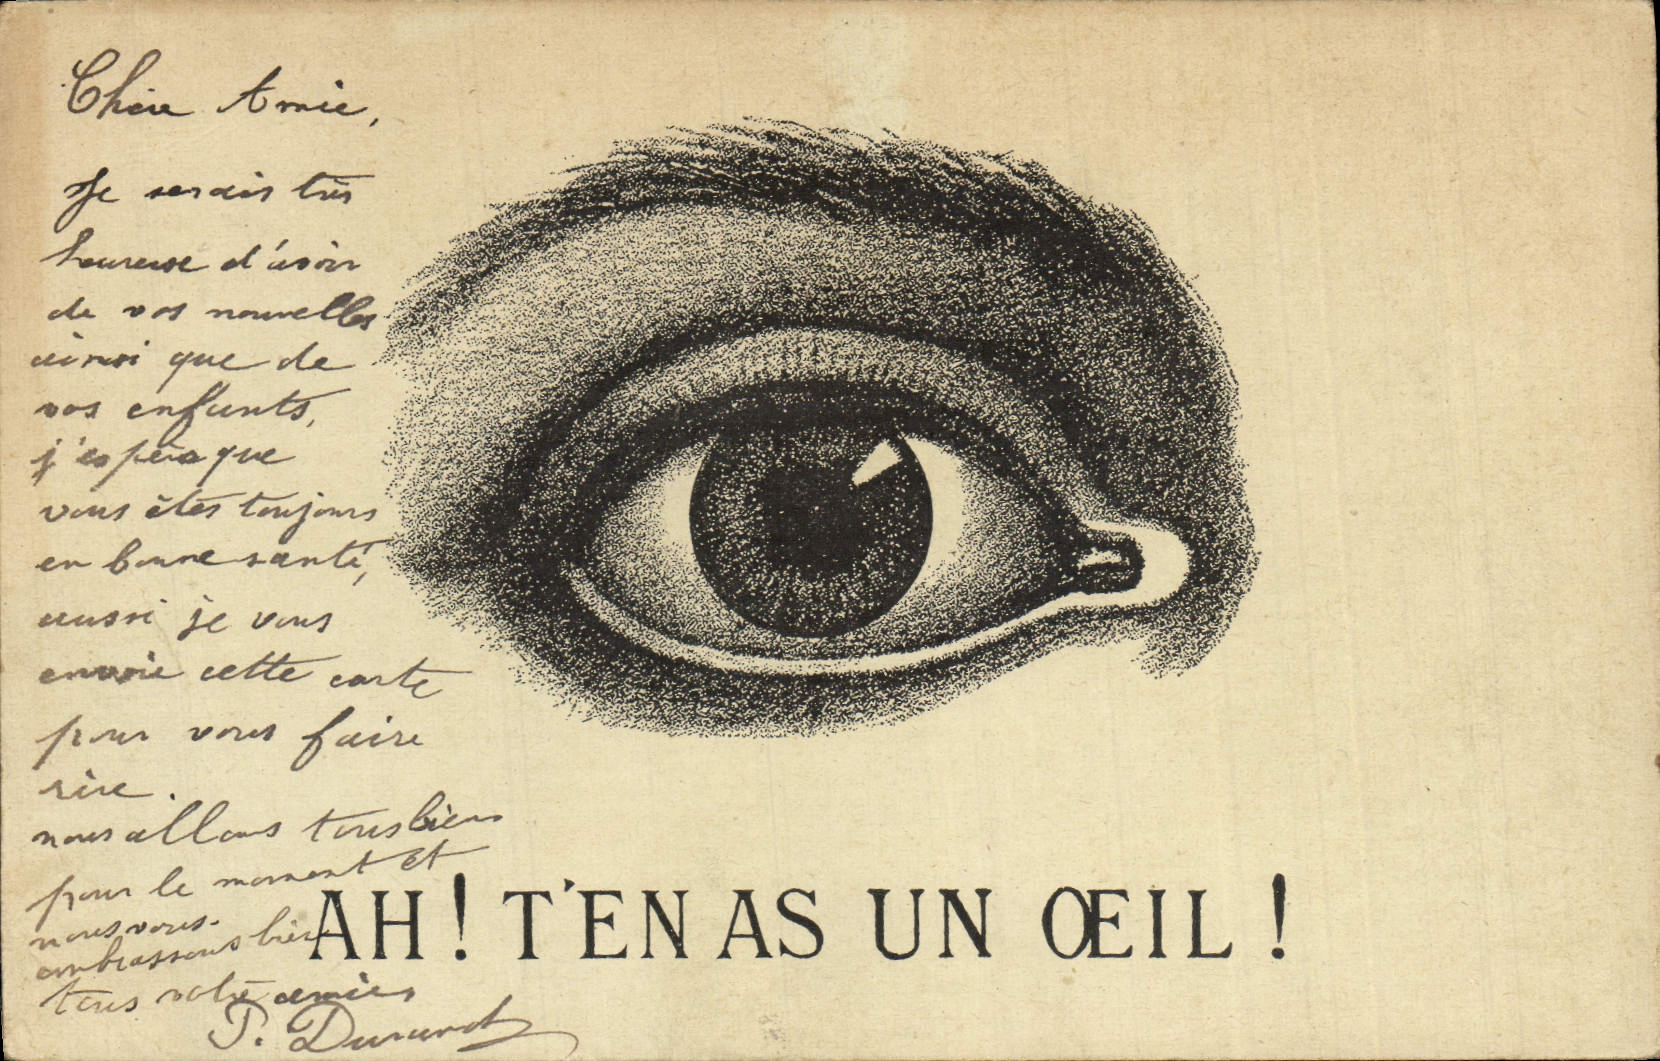 Chère Amie,
Je serais très
heureuse d'avoir
de vos nouvelles
ainsi que de
vos enfants,
j'espère que
vous êtes toujours
en bonne santé,
aussi je vous
envoie cette carte
pour vous faire
rire.
nous allons tous bien
pour le moment et
nous vous
embrassons bien
tous votre amie
P. Durand
AH! T'EN AS UN ŒIL!